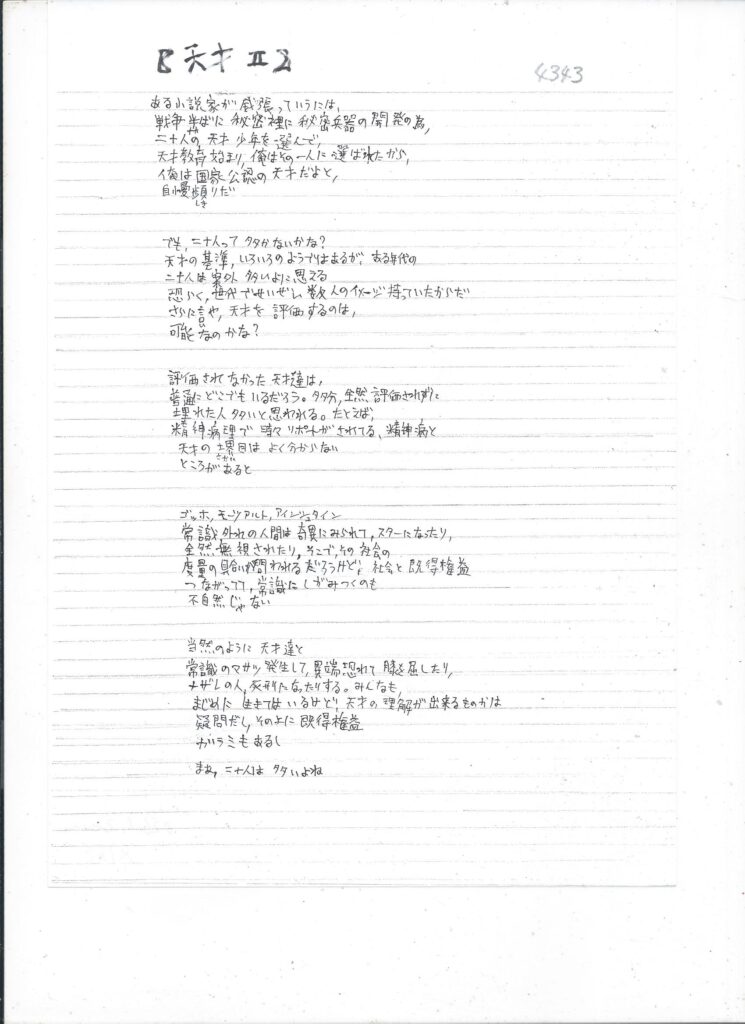 B 天才 II 2
4343
ある小説家が威張っていうには、
戦争半ばに秘密裡に秘密兵器の開発の為、
二十人の天才少年を選んで、
天才教育始まり、俺はその一人に選ばれたから、
俺は国家公認の天才だよと、
自慢頻りだ
しき
でも、二十人って多かないかな?
天才の基準、いろいろのようではあるが、ある年代の
二十人は案外多いように思える
恐らく、世代でせいぜい数人のイメージ持っていたからだ
さらに言や、天才を評価するのは、
可能なのかな?
評価されてなかった天才達は、
普通にどこでもいるだろう。多分、全然評価されずに
埋れた人多いと思われる。たとえば、
精神病理で時々リポートがされてる、精神病と
天才の境目はよく分からない
ところがあると
ゴッホ、モーツアルト、アインシュタイン
常識外れの人間は奇異にみられて、スターになったり、
全然無視されたり、そこで、その社会の
度量の具合いが問われるだろうけど、社会と既得権益
つながってて、常識にしがみつくのも
不自然じゃない
当然のように天才達と
常識のマサツ発生して、異端恐れて膝を屈したり、
ナザレの人、死刑になったりする。みんなも、
まじめに生きてはいるけど、天才の理解が出来るものかは
疑問だし、その上に既得権益
ガラミもあるし
まあ、二十人は多いよね